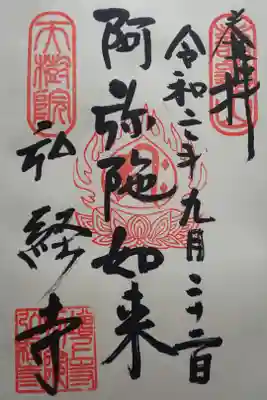 奉拝
令和二年九月二十二日
阿弥陀如来
弘経寺
天樹院